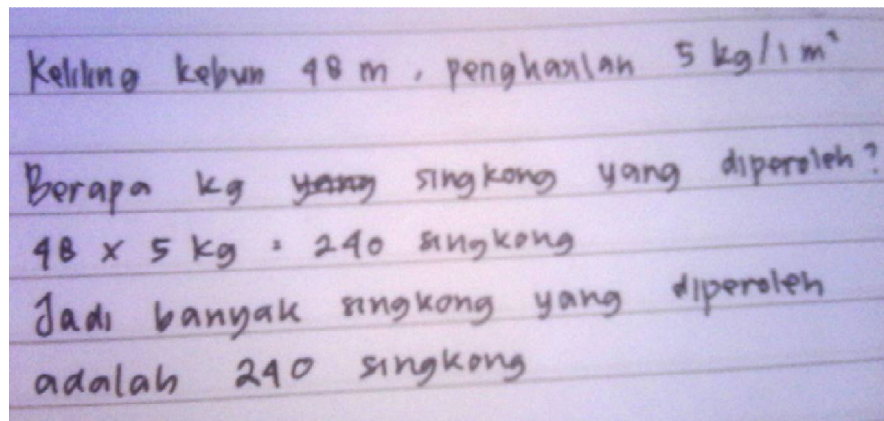 Keliling kebun 48 m, penghasilan 5 kg/1 m²
Berapa kg yang singkong yang diperoleh?
48 x 5 kg = 240 singkong
Jadi banyak singkong yang diperoleh
adalah 240 singkong